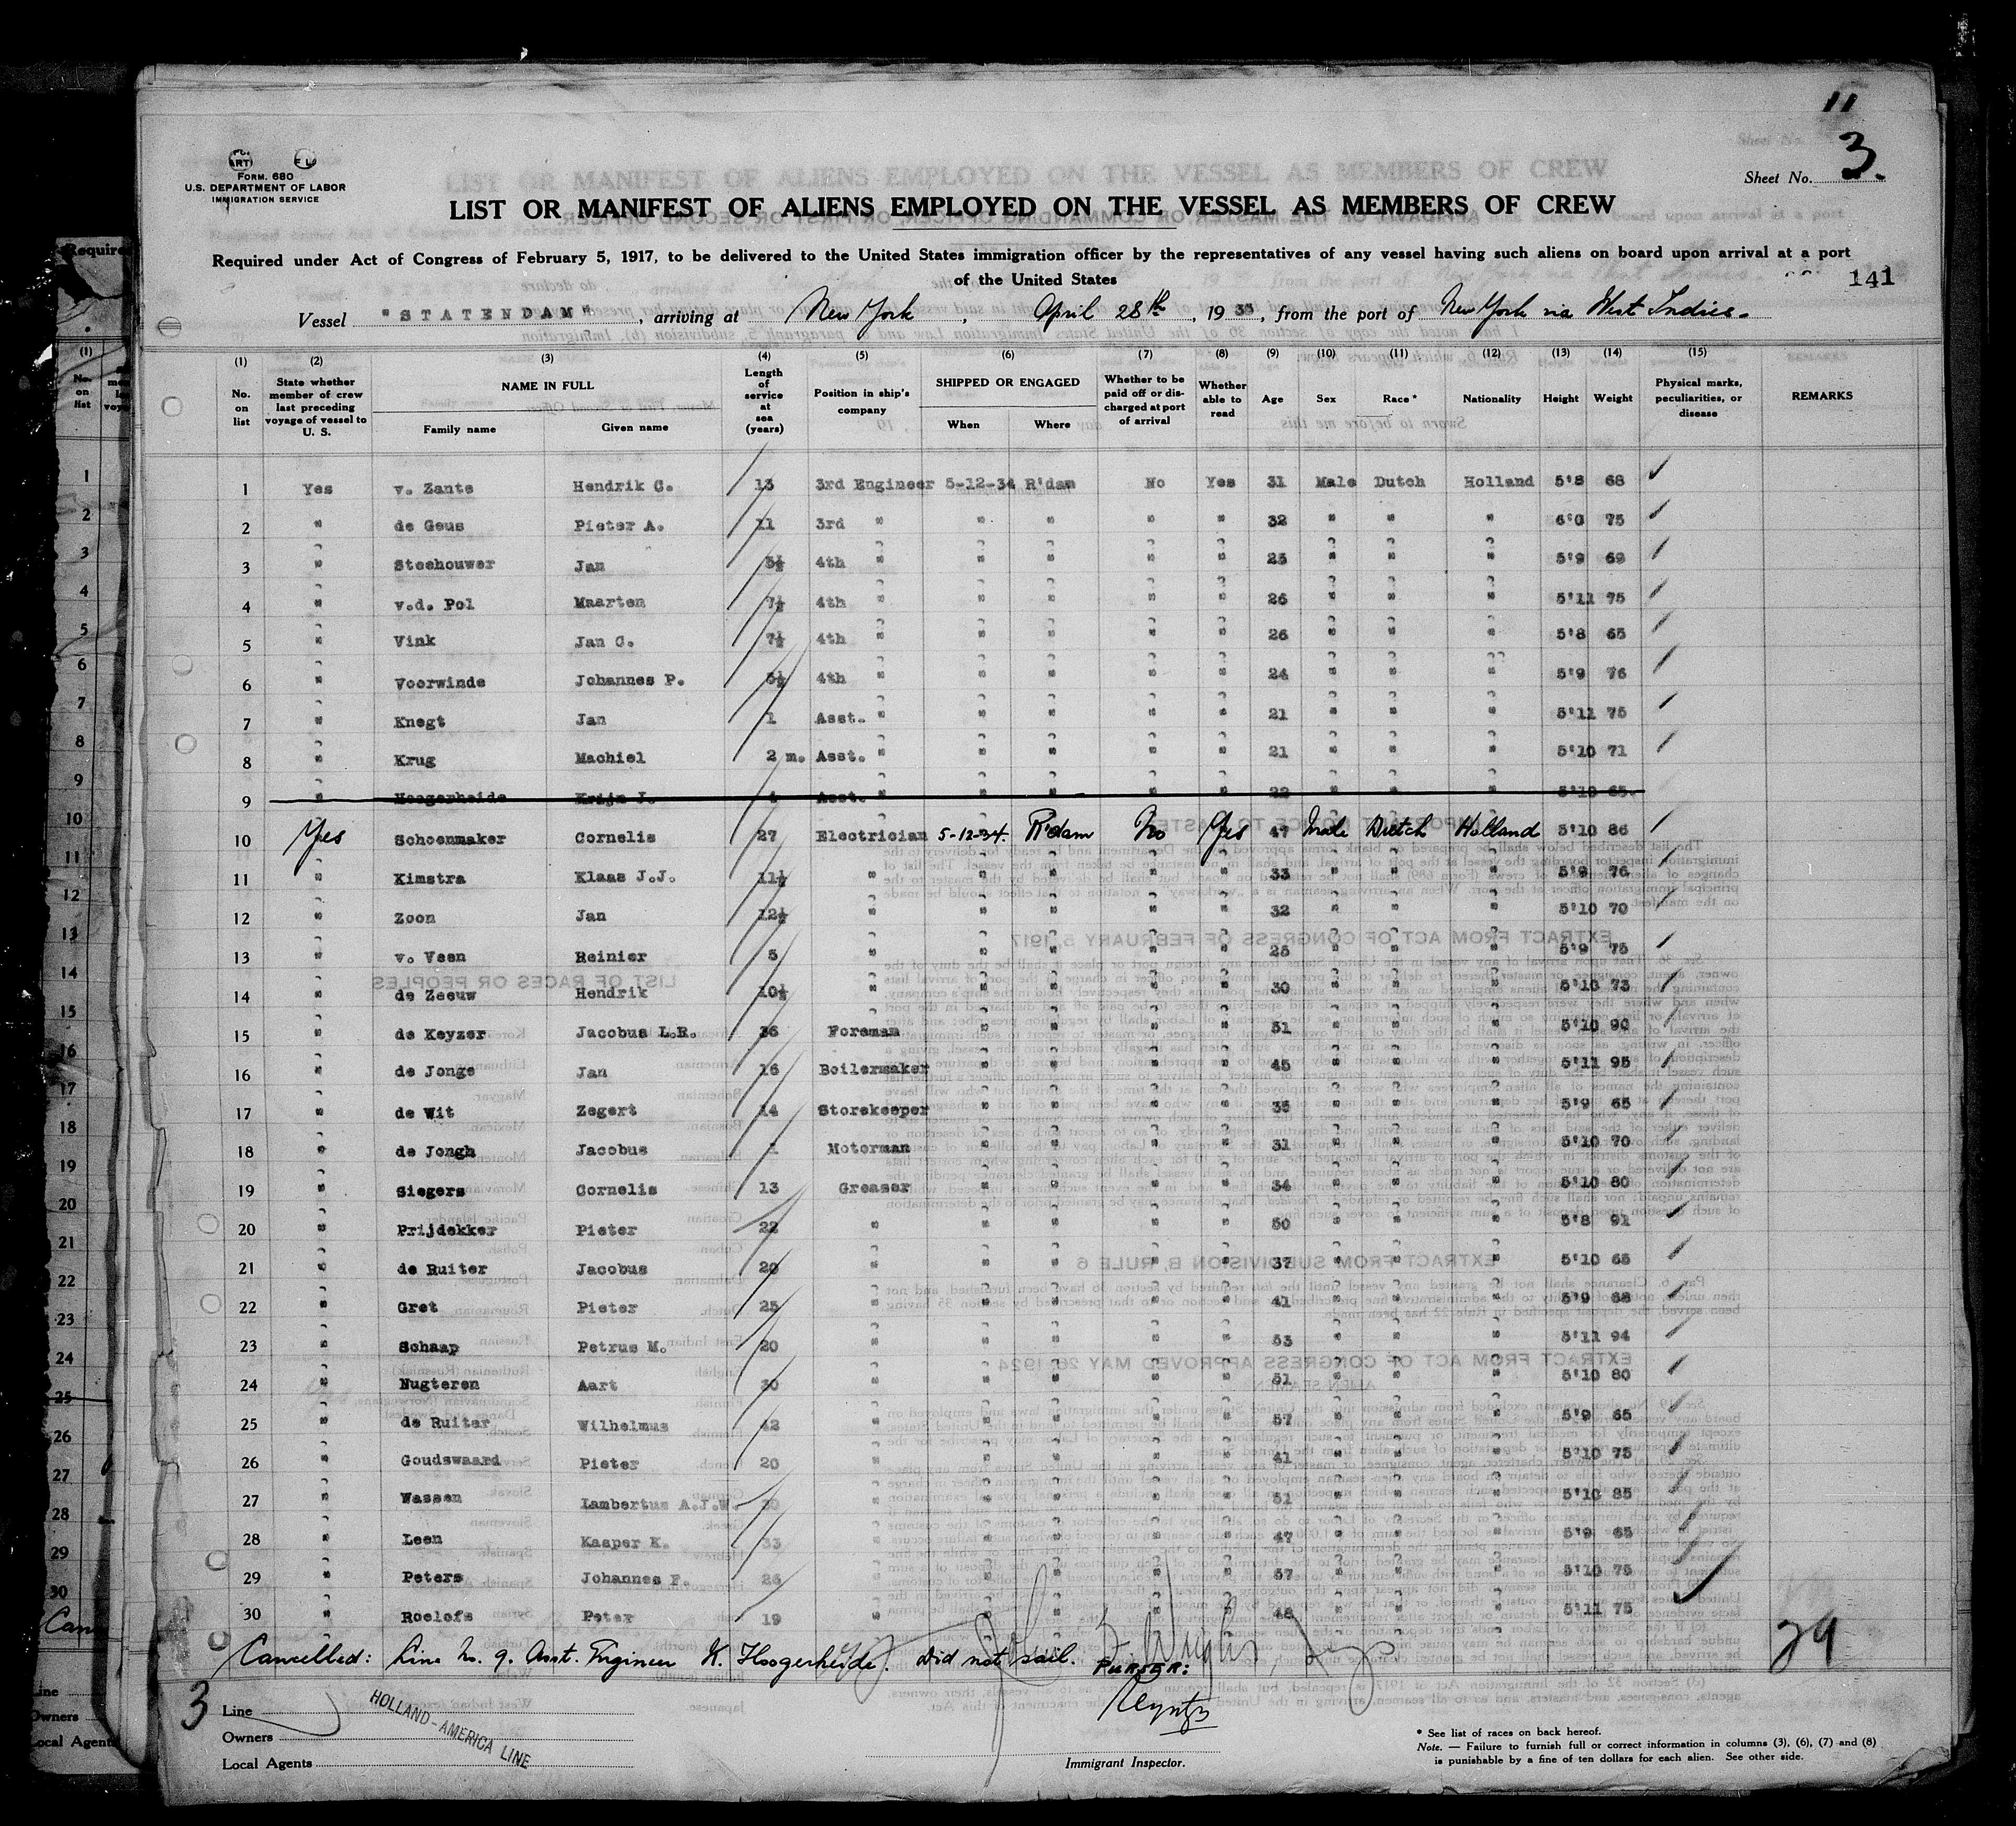 11
Sheet No. 3.
FORM. 680
U.S. DEPARTMENT OF LABOR
IMMIGRATION SERVICE
LIST OR MANIFEST OF ALIENS EMPLOYED ON THE VESSEL AS MEMBERS OF CREW
Required under Act of Congress of February 5, 1917, to be delivered to the United States immigration officer by the representatives of any vessel having such aliens on board upon arrival at a port
of the United States
141
Vessel "STATENDAM", arriving at New York, April 28th, 1935, from the port of New York via West Indies.
(1) (2) (3) (4) (5) (6) (7) (8) (9) (10) (11) (12) (13) (14) (15)
No. on list State whether member of crew last preceding voyage of vessel to U. S. NAME IN FULL Family name Given name Length of service at sea (years) Position in ship's company SHIPPED OR ENGAGED When Where Whether to be paid off or discharged at port of arrival Whether able to read Age Sex Race* Nationality Height Weight Physical marks, peculiarities, or disease REMARKS
1 Yes v. Zante Hendrik C. 13 3rd Engineer 5-12-34 R'dam No Yes 31 Male Dutch Holland 5'8 68
2 " de Geus Pieter A. 11 3rd " " " " " 32 " " " 6'0 75
3 " Steehouwer Jan 5½ 4th " " " " " 25 " " " 5'9 69
4 " v.d. Pol Maarten 7½ 4th " " " " " 26 " " " 5'11 75
5 " Vink Jan C. 7½ 4th " " " " " 26 " " " 5'8 65
6 " Voorwinde Johannes P. 5½ 4th " " " " " 24 " " " 5'9 76
7 " Knegt Jan 1 Asst. " " " " " 21 " " " 5'11 75
8 " Krug Machiel 2 m. Asst. " " " " " 21 " " " 5'10 71
9 " Hoogerheide Krijn J. 1 Asst. " " " " " 22 " " " 5'10 65.
10 Yes Schoenmaker Cornelis 27 Electrician 5-12-34. R'dam No Yes 47 Male Dutch Holland 5'10 86
11 " Kimstra Klaas J.J. 11½ " " " " " 33 " " " 5'9 76
12 " Zoon Jan 12½ " " " " " 32 " " " 5'10 70
13 " v. Veen Reinier 5 " " " " " 25 " " " 5'9 75
14 " de Zeeuw Hendrik 10½ " " " " " 30 " " " 5'10 73
15 " de Keyzer Jacobus L.R. 36 Foreman " " " " 51 " " " 5'10 90
16 " de Jonge Jan 16 Boilermaker " " " " 45 " " " 5'11 95
17 " de Wit Zegert 14 Storekeeper " " " " 35 " " " 5'9 65
18 " de Jongh Jacobus Motorman " " " " 31 " " " 5'10 70
19 " Siegers Cornelis 13 Greaser " " " " 34 " " " 5'10 80
20 " Prijdekker Pieter 22 " " " " " 50 " " " 5'8 91
21 " de Ruiter Jacobus 20 " " " " " 37 " " " 5'10 65
22 " Gret Pieter 25 " " " " " 41 " " " 5'9 68
23 " Schaap Petrus M. 20 " " " " " 53 " " " 5'11 94
24 " Nugteren Aart 30 " " " " " 51 " " " 5'10 80
25 " de Ruiter Wilhelmus 42 " " " " " 57 " " " 5'9 65
26 " Goudswaard Pieter 20 " " " " " 41 " " " 5'10 75
27 " Wassen Lambertus A.J.W. 30 " " " " " 51 " " " 5'10 85
28 " Leen Kasper K. 33 " " " " " 47 " " " 5'9 65
29 " Peters Johannes F. 26 " " " " " 57 " " " 5'10 75
30 " Roelofs Peter 19 " " " " " 48 " " " 5'11 75
Cancelled: Line No. 9. Asst. Engineer K. Hoogerheide. Did not sail.
PURSER:
29
3
Line
HOLLAND-AMERICA LINE
Owners
Local Agents
Immigrant Inspector.
* See list of races on back hereof.
Note. — Failure to furnish full or correct information in columns (3), (6), (7) and (8)
is punishable by a fine of ten dollars for each alien. See other side.